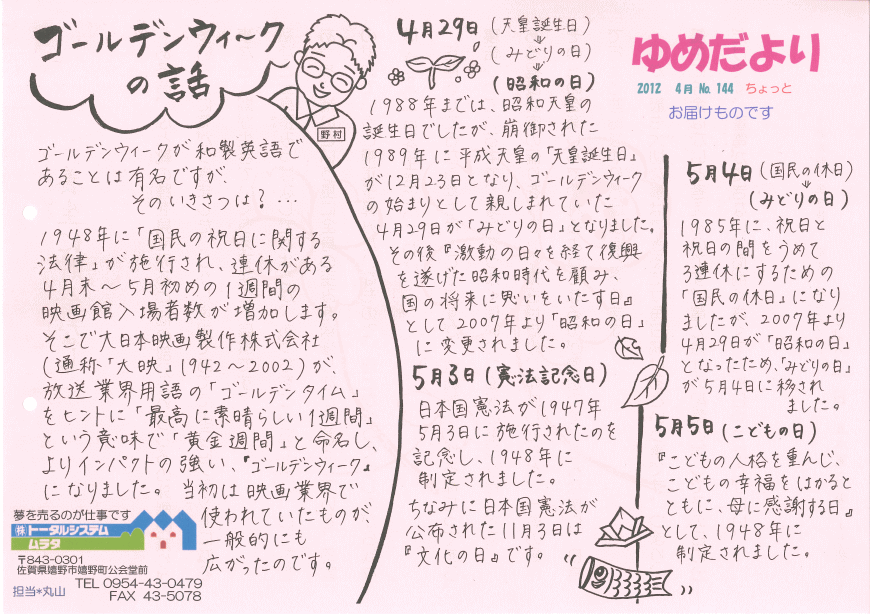 ゴールデンウィ〜ク
の話
野村
ゴールデンウィークが和製英語で
あることは有名ですが、
そのいきさつは？…
1948年に「国民の祝日に関する
法律」が施行され、連休がある
4月末〜5月初めの1週間の
映画館入場者数が増加します。
そこで大日本映画製作株式会社
(通称「大映」1942〜2002)が、
放送業界用語の「ゴールデンタイム」
をヒントに「最高に素晴らしい1週間」
という意味で「黄金週間」と命名し、
よりインパクトの強い、『ゴールデンウィーク』
になりました。当初は映画業界で
使われていたものが、
一般的にも
広がったのです。
夢を売るのが仕事です
㈱トータルシステム
ムラタ
〒843-0301
佐賀県嬉野市嬉野町公会堂前
TEL 0954-43-0479
担当*丸山
FAX 43-5078
4月29日(天皇誕生日)
(みどりの日)
(昭和の日)
1988年までは、昭和天皇の
誕生日でしたが、崩御された
1989年に平成天皇の「天皇誕生日」
が12月23日となり、ゴールデンウィーク
の始まりとして親しまれていた
4月29日が「みどりの日」となりました。
その後『激動の日々を経て復興
を遂げた昭和時代を顧み、
国の将来に思いをいたす日』
として2007年より「昭和の日」
に変更されました。
5月3日(憲法記念日)
日本国憲法が1947年
5月3日に施行されたのを
記念し、1948年に
制定されました。
ちなみに日本国憲法が
公布された11月3日は
『文化の日』です。
ゆめだより
2012 4月 No. 144 ちょっと
お届けものです
5月4日(国民の休日)
(みどりの日)
1985年に、祝日と
祝日の間をうめて
3連休にするための
「国民の休日」になり
ましたが、2007年より
4月29日が「昭和の日」
となったため、「みどりの日」
が5月4日に移され
ました。
5月5日(こどもの日)
『こどもの人格を重んじ、
こどもの幸福をはかると
ともに、母に感謝する日』
として、1948年に
制定されました。